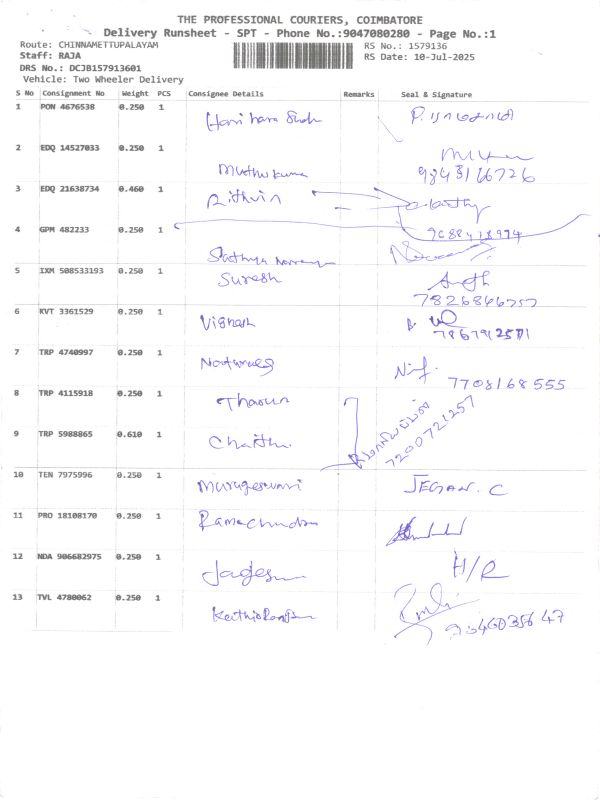 THE PROFESSIONAL COURIERS, COIMBATORE
Delivery Runsheet - SPT - Phone No.:9047080280 - Page No.:1
Route: CHINNAMETTUPALAYAM RS No.: 1579136
Staff: RAJA RS Date: 10-Jul-2025
DRS No.: DCJB157913601
Vehicle: Two Wheeler Delivery
S No Consignment No Weight PCS Consignee Details Remarks Seal & Signature
1 PON 4676538 0.250 1
2 EDQ 14527033 0.250 1 Muthukuma
3 EDQ 21638734 0.460 1 Rithvin
4 GPM 482233 0.250 1 Sathya
5 IXM 508533193 0.250 1 Suresh
7826866757
6 KVT 3361529 0.250 1 Vignesh
7 TRP 4740997 0.250 1
7708168555
8 TRP 4115918 0.250 1 Tharun
7200721257
9 TRP 5988865 0.610 1
10 TEN 7975996 0.250 1 Murugeswari JEGAN. C
11 PRO 18108170 0.250 1
12 NDA 906682975 0.250 1 H/R
13 TVL 4780062 0.250 1